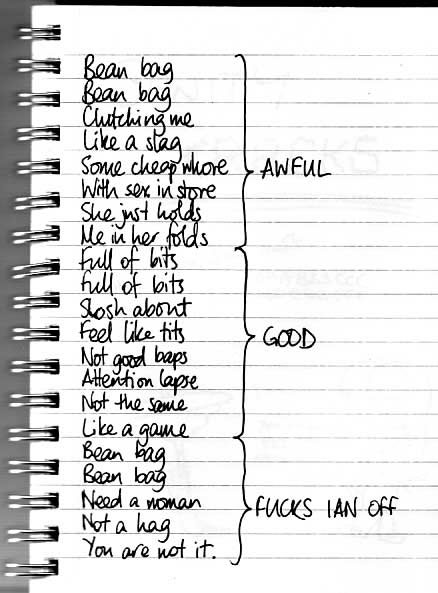 Bean bag
Bean bag
Clutching me
Like a slag
Some cheap whore
With sex in store
She just holds
Me in her folds
AWFUL
Full of bits
Full of bits
Slosh about
Feel like tits
Not good baps
Attention lapse
Not the same
Like a game
GOOD
Bean bag
Bean bag
Need a woman
Not a hag
You are not it.
FUCKS IAN OFF